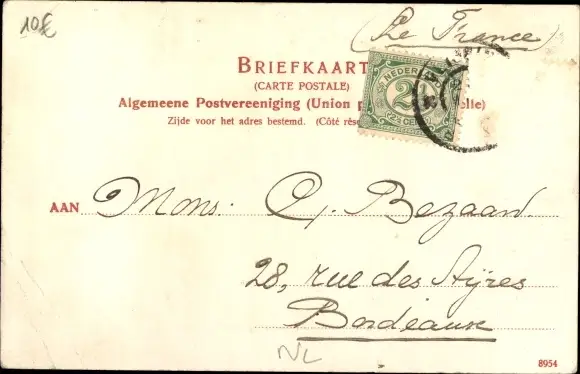 10€
(Le France)
BRIEFKAART
(CARTE POSTALE)
Algemeene Postvereeniging (Union p elle)
Zijde voor het adres bestemd. (Côté rése
NEDERL
2½
(2½ CEN
AAN Mons. C. Bezaan.
28, rue des Ayres
Bordeaux
NL
8954